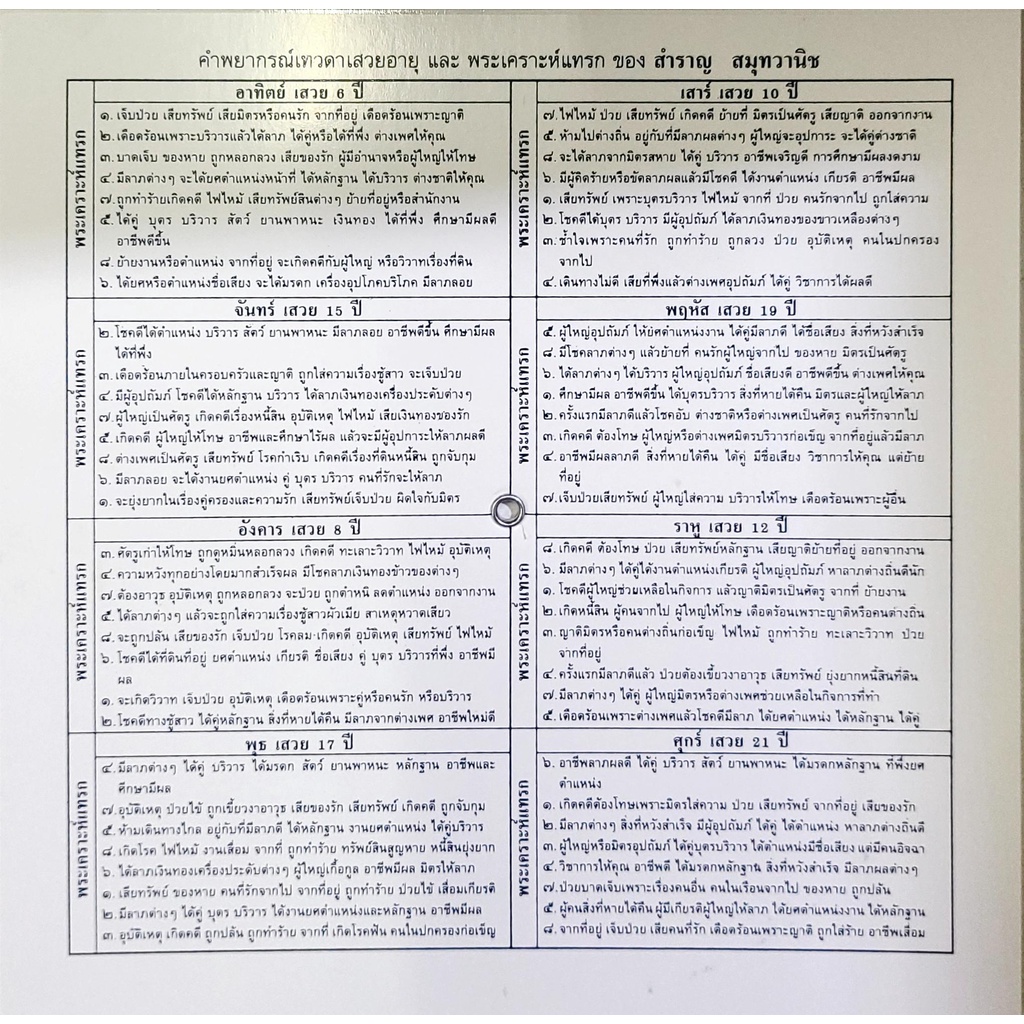 คำพยากรณ์เทวดาเสวยอายุ และ พระเคราะห์แทรก ของ สำราญ สมุทวานิช
อาทิตย์ เสวย 6 ปี
พระเคราะห์แทรก
๑. เจ็บป่วย เสียทรัพย์ เสียมิตรหรือคนรัก จากที่อยู่ เดือดร้อนเพราะญาติ
๒. เดือดร้อนเพราะบริวารแล้วได้ลาภ ได้คู่หรือได้ที่พึ่ง ต่างเพศให้คุณ
๓. บาดเจ็บ ของหาย ถูกหลอกลวง เสียของรัก ผู้มีอำนาจหรือผู้ใหญ่ให้โทษ
๔. มีลาภต่างๆ จะได้ยศตำแหน่งหน้าที่ ได้หลักฐาน ได้บริวาร ต่างชาติให้คุณ
๗. ถูกทำร้ายเกิดคดี ไฟไหม้ เสียทรัพย์สินต่างๆ ย้ายที่อยู่หรือสำนักงาน
๕. ได้คู่ บุตร บริวาร สัตว์ ยานพาหนะ เงินทอง ได้ที่พึ่ง ศึกษามีผลดี
อาชีพดีขึ้น
๘. ย้ายงานหรือตำแหน่ง จากที่อยู่ จะเกิดคดีกับผู้ใหญ่ หรือวิวาทเรื่องที่ดิน
๖. ได้ยศหรือตำแหน่งชื่อเสียง จะได้มรดก เครื่องอุปโภคบริโภค มีลาภลอย
จันทร์ เสวย 15 ปี
พระเคราะห์แทรก
๒. โชคดีได้ตำแหน่ง บริวาร สัตว์ ยานพาหนะ มีลาภลอย อาชีพดีขึ้น ศึกษามีผล
ได้ที่พึ่ง
๓. เดือดร้อนภายในครอบครัวและญาติ ถูกใส่ความเรื่องชู้สาว จะเจ็บป่วย
๔. มีผู้อุปถัมภ์ โชคดีได้หลักฐาน บริวาร ได้ลาภเงินทองเครื่องประดับต่างๆ
๗. ผู้ใหญ่เป็นศัตรู เกิดคดีเรื่องหนี้สิน อุบัติเหตุ ไฟไหม้ เสียเงินทองของรัก
๕. เกิดคดี ผู้ใหญ่ให้โทษ อาชีพและศึกษาไร้ผล แล้วจะมีผู้อุปการะให้ลาภผลดี
๘. ต่างเพศเป็นศัตรู เสียทรัพย์ โรคกำเริบ เกิดคดีเรื่องที่ดินหนี้สิน ถูกจับกุม
๖. มีลาภลอย จะได้งานยศตำแหน่ง คู่ บุตร บริวาร คนที่รักจะให้ลาภ
๑. จะยุ่งยากในเรื่องคู่ครองและความรัก เสียทรัพย์เจ็บป่วย ผิดใจกับมิตร
อังคาร เสวย 8 ปี
พระเคราะห์แทรก
๓. ศัตรูเก่าให้โทษ ถูกดูหมิ่นหลอกลวง เกิดคดี ทะเลาะวิวาท ไฟไหม้ อุบัติเหตุ
๔. ความหวังทุกอย่างโดยมากสำเร็จผล มีโชคลาภเงินทองข้าวของต่างๆ
๗. ต้องอาวุธ อุบัติเหตุ ถูกหลอกลวง จะป่วย ถูกตำหนิ ลดตำแหน่ง ออกจากงาน
๕. ได้ลาภต่างๆ แล้วจะถูกใส่ความเรื่องชู้สาวผัวเมีย สาเหตุหวาดเสียว
๘. จะถูกปล้น เสียของรัก เจ็บป่วย โรคลม·เกิดคดี อุบัติเหตุ เสียทรัพย์ ไฟไหม้
๖. โชคดีได้ที่ดินที่อยู่ ยศตำแหน่ง เกียรติ ชื่อเสียง คู่ บุตร บริวารที่พึ่ง อาชีพมี
ผล
๑. จะเกิดวิวาท เจ็บป่วย อุบัติเหตุ เดือดร้อนเพราะคู่หรือคนรัก หรือบริวาร
๒. โชคดีทางชู้สาว ได้คู่หลักฐาน สิ่งที่หายได้คืน มีลาภจากต่างเพศ อาชีพใหม่ดี
พุธ เสวย 17 ปี
พระเคราะห์แทรก
๔. มีลาภต่างๆ ได้คู่ บริวาร ได้มรดก สัตว์ ยานพาหนะ หลักฐาน อาชีพและ
ศึกษามีผล
๗. อุบัติเหตุ ป่วยไข้ ถูกเขี้ยวงาอาวุธ เสียของรัก เสียทรัพย์ เกิดคดี ถูกจับกุม
๕. ห้ามเดินทางไกล อยู่กับที่มีลาภดี ได้หลักฐาน งานยศตำแหน่ง ได้คู่บริวาร
๘. เกิดโรค ไฟไหม้ งานเสื่อม จากที่ ถูกทำร้าย ทรัพย์สินสูญหาย หนี้สินยุ่งยาก
๖. ได้ลาภเงินทองเครื่องประดับต่างๆ ผู้ใหญ่เกื้อกูล อาชีพมีผล มิตรให้ลาภ
๑. เสียทรัพย์ ของหาย คนที่รักจากไป จากที่อยู่ ถูกทำร้าย ป่วยไข้ เสื่อมเกียรติ
๒. มีลาภต่างๆ ได้คู่ บุตร บริวาร ได้งานยศตำแหน่งและหลักฐาน อาชีพมีผล
๓. อุบัติเหตุ เกิดคดี ถูกปล้น ถูกทำร้าย จากที่ เกิดโรคฟัน คนในปกครองก่อเข็ญ
เสาร์ เสวย 10 ปี
พระเคราะห์แทรก
๗. ไฟไหม้ ป่วย เสียทรัพย์ เกิดคดี ย้ายที่ มิตรเป็นศัตรู เสียญาติ ออกจากงาน
๕. ห้ามไปต่างถิ่น อยู่กับที่มีลาภผลต่างๆ ผู้ใหญ่จะอุปการะ จะได้คู่ต่างชาติ
๘. จะได้ลาภจากมิตรสหาย ได้คู่ บริวาร อาชีพเจริญดี การศึกษามีผลงดงาม
๖. มีผู้คิดร้ายหรือขัดลาภผลแล้วมีโชคดี ได้งานตำแหน่ง เกียรติ อาชีพมีผล
๑. เสียทรัพย์ เพราะบุตรบริวาร ไฟไหม้ จากที่ ป่วย คนรักจากไป ถูกใส่ความ
๒. โชคดีได้บุตร บริวาร มีผู้อุปถัมภ์ ได้ลาภเงินทองของขาวเหลืองต่างๆ
๓. ช้ำใจเพราะคนที่รัก ถูกทำร้าย ถูกลวง ป่วย อุบัติเหตุ คนในปกครอง
จากไป
๔. เดินทางไม่ดี เสียที่พึ่งแล้วต่างเพศอุปถัมภ์ ได้คู่ วิชาการได้ผลดี
พฤหัส เสวย 19 ปี
พระเคราะห์แทรก
๕. ผู้ใหญ่อุปถัมภ์ ให้ยศตำแหน่งงาน ได้คู่มีลาภดี ได้ชื่อเสียง สิ่งที่หวังสำเร็จ
๘. มีโชคลาภต่างๆ แล้วย้ายที่ คนรักผู้ใหญ่จากไป ของหาย มิตรเป็นศัตรู
๖. ได้ลาภต่างๆ ได้บริวาร ผู้ใหญ่อุปถัมภ์ ชื่อเสียงดี อาชีพดีขึ้น ต่างเพศให้คุณ
๑. ศึกษามีผล อาชีพดีขึ้น ได้บุตรบริวาร สิ่งที่หายได้คืน มิตรและผู้ใหญ่ให้ลาภ
๒. ครั้งแรกมีลาภดีแล้วโชคอับ ต่างชาติหรือต่างเพศเป็นศัตรู คนที่รักจากไป
๓. เกิดคดี ต้องโทษ ผู้ใหญ่หรือต่างเพศมิตรบริวารก่อเข็ญ จากที่อยู่แล้วมีลาภ
๔. อาชีพมีผลลาภดี สิ่งที่หายได้คืน ได้คู่ มีชื่อเสียง วิชาการให้คุณ แต่ย้าย
ที่อยู่
๗. เจ็บป่วยเสียทรัพย์ ผู้ใหญ่ใส่ความ บริวารให้โทษ เดือดร้อนเพราะผู้อื่น
ราหู เสวย 12 ปี
พระเคราะห์แทรก
๘. เกิดคดี ต้องโทษ ป่วย เสียทรัพย์หลักฐาน เสียญาติย้ายที่อยู่ ออกจากงาน
๖. มีลาภต่างๆ ได้คู่ได้งานตำแหน่งเกียรติ ผู้ใหญ่อุปถัมภ์ หาลาภต่างถิ่นดีนัก
๑. โชคดีผู้ใหญ่ช่วยเหลือในกิจการ แล้วญาติมิตรเป็นศัตรู จากที่ ย้ายงาน
๒. เกิดหนี้สิน ผู้คนจากไป ผู้ใหญ่ให้โทษ เดือดร้อนเพราะญาติหรือคนต่างถิ่น
๓. ญาติมิตรหรือคนต่างถิ่นก่อเข็ญ ไฟไหม้ ถูกทำร้าย ทะเลาะวิวาท ป่วย
จากที่อยู่
๔. ครั้งแรกมีลาภดีแล้ว ป่วยต้องเขี้ยวงาอาวุธ เสียทรัพย์ ยุ่งยากหนี้สินที่ดิน
๗. มีลาภต่างๆ ได้คู่ ผู้ใหญ่มิตรหรือต่างเพศช่วยเหลือในกิจการที่ทำ
๕. เดือดร้อนเพราะต่างเพศแล้วโชคดีมีลาภ ได้ยศตำแหน่ง ได้หลักฐาน ได้คู่
ศุกร์ เสวย 21 ปี
พระเคราะห์แทรก
๖. อาชีพลาภผลดี ได้คู่ บริวาร สัตว์ ยานพาหนะ ได้มรดกหลักฐาน ที่พึ่งยศ
ตำแหน่ง
๑. เกิดคดีต้องโทษเพราะมิตรใส่ความ ป่วย เสียทรัพย์ จากที่อยู่ เสียของรัก
๒. มีลาภต่างๆ สิ่งที่หวังสำเร็จ มีผู้อุปถัมภ์ ได้คู่ ได้ตำแหน่ง หาลาภต่างถิ่นดี
๓. ผู้ใหญ่หรือมิตรอุปถัมภ์ ได้คู่บุตรบริวาร ได้ตำแหน่งมีชื่อเสียง แต่มีคนอิจฉา
๔. วิชาการให้คุณ อาชีพดี ได้มรดกหลักฐาน สิ่งที่หวังสำเร็จ มีลาภผลต่างๆ
๗. ป่วยบาดเจ็บเพราะเรื่องคนอื่น คนในเรือนจากไป ของหาย ถูกปล้น
๕. ผู้คนสิ่งที่หายได้คืน ผู้มีเกียรติผู้ใหญ่ให้ลาภ ได้ยศตำแหน่งงาน ได้หลักฐาน
๘. จากที่อยู่ เจ็บป่วย เสียคนที่รัก เดือดร้อนเพราะญาติ ถูกใส่ร้าย อาชีพเสื่อม